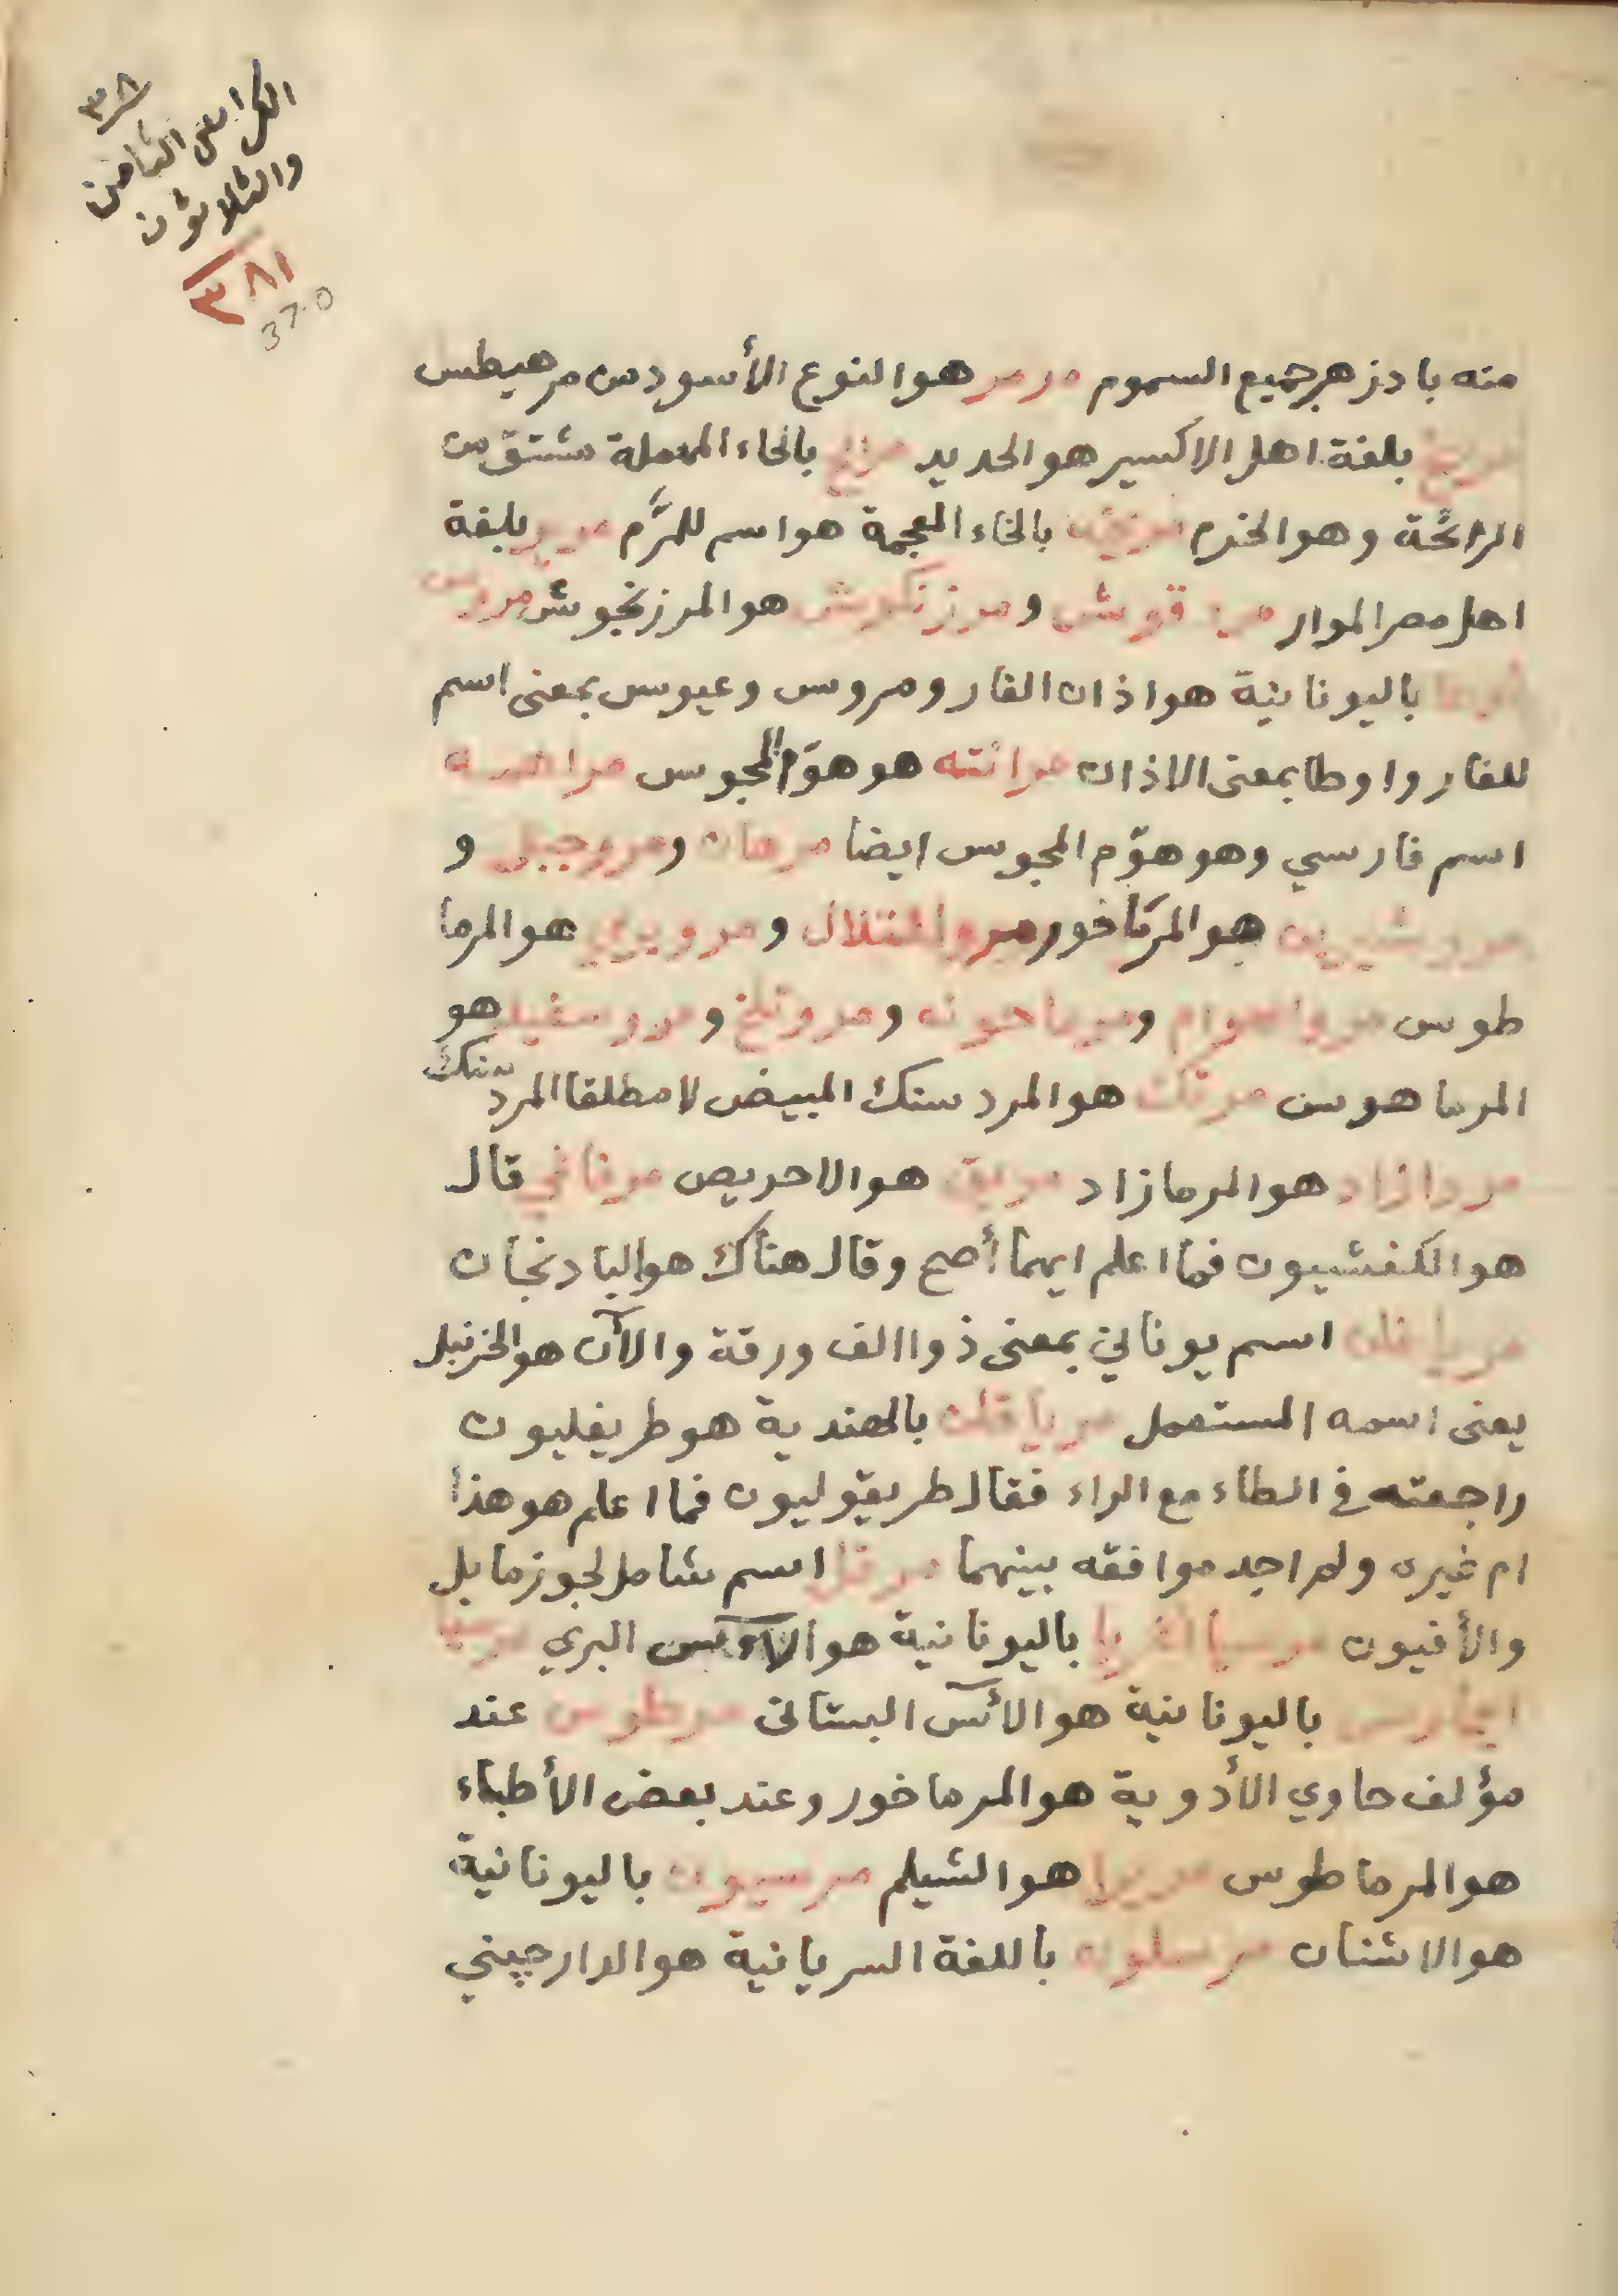 ٣٨
الكراس الثامن
والثلاثون
٣٨١
370
منه بادزهر جميع السموم مرمر هو النوع الأسود من مرهيطس
مريخ بلغة اهل الاكسير هو الحديد بالحاء المهملة مشتق من
الرائحة وهو الخزم بالخاء المعجمة هو اسم للمرّم بلغة
اهل مصر الموار قوش ومرزنكوش هو المرزنجوش مروس
باليونانية هو اذان الفار ومروس وعيوس بمعنى اسم
للفار واوطا بمعنى الاذان مرانته هو هوّم المجوس
اسم فارسي وهو هوّم المجوس ايضا ومروجبلي و
مروشيرين هو المرماخور و هو المرما
طوس و ومروتلخ ومروسفيد هو
المرماهوس مرتك هو المردسنك المبيض لا مطلقا المردسنك
مردازاد هو المرمازاد مريق هو الاحريص قال
هو الكفشيون فما اعلم ايهما أصح وقال هناك هو البادنجان
اسم يوناني بمعنى ذو االف ورقة والآن هو الخزنبل
يعنى اسمه المستعمل بالهندية هو طريفليون
راجعته في الطاء مع الراء فقال طريقوليون فما اعلم هو هذا
ام غيره ولم اجد موافقه بينهما مرقد اسم شامل لجوزمابل
والأفيون مرسيا اغريا باليونانية هو الآس البري مرسيا
باليونانية هو الآس البستانى عند
مؤلف حاوي الأدوية هو المرماخور وعند بعض الأطباء
هو المرماطوس مريرا هو الشيلم باليونانية
هو الاشنان باللغة السريانية هو الدارچيني